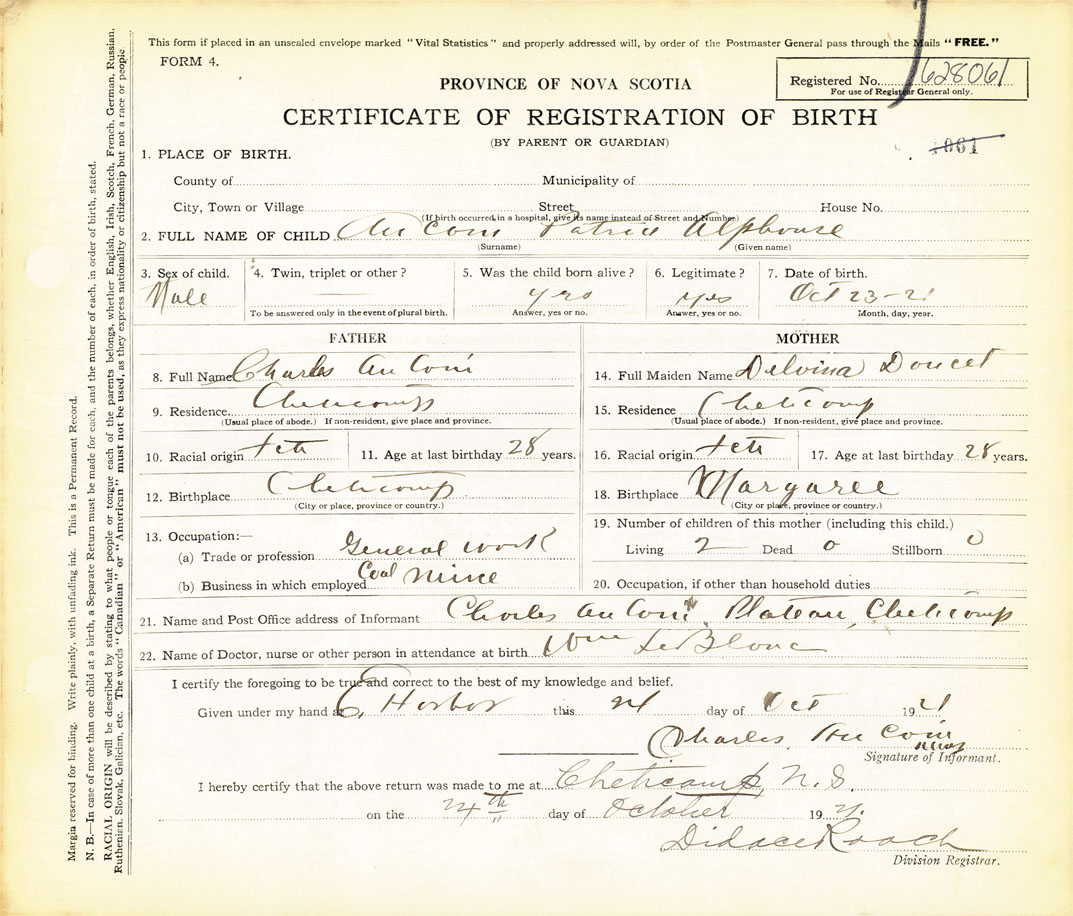 This form if placed in an unsealed envelope marked "Vital Statistics" and properly addressed will, by order of the Postmaster General pass through the Mails "FREE."
FORM 4.
Registered No. 628061
For use of Registrar General only.
PROVINCE OF NOVA SCOTIA
CERTIFICATE OF REGISTRATION OF BIRTH
(BY PARENT OR GUARDIAN)
1061
1. PLACE OF BIRTH.
County of Municipality of
City, Town or Village Street House No.
(If birth occurred in a hospital, give its name instead of Street and Number)
2. FULL NAME OF CHILD Au Coin Patrice Alphonse
(Surname) (Given name)
3. Sex of child. 4. Twin, triplet or other? 5. Was the child born alive? 6. Legitimate? 7. Date of birth.
Male — yes yes Oct 23-21
To be answered only in the event of plural birth. Answer, yes or no. Answer, yes or no. Month, day, year.
FATHER
8. Full Name Charles Au Coin
9. Residence Cheticamp
(Usual place of abode.) If non-resident, give place and province.
10. Racial origin 11. Age at last birthday 28 years.
12. Birthplace Cheticamp
(City or place, province or country.)
13. Occupation:—
(a) Trade or profession General work
(b) Business in which employed Coal Mine
MOTHER
14. Full Maiden Name Delvina Doucet
15. Residence Cheticamp
(Usual place of abode.) If non-resident, give place and province.
16. Racial origin 17. Age at last birthday 28 years.
18. Birthplace Margaree
(City or place, province or country.)
19. Number of children of this mother (including this child.)
Living 2 Dead 0 Stillborn 0
20. Occupation, if other than household duties
21. Name and Post Office address of Informant Charles Au Coin, Plateau, Cheticamp
22. Name of Doctor, nurse or other person in attendance at birth Wm LeBlanc
I certify the foregoing to be true and correct to the best of my knowledge and belief.
Given under my hand at E. Harbor this 24 day of Oct 1921
Charles Au Coin
Signature of Informant.
I hereby certify that the above return was made to me at Cheticamp, N.S.
on the 24th day of October 1921.
Didace Roach
Division Registrar.
Margin reserved for binding. Write plainly, with unfading ink. This is a Permanent Record.
N. B.—In case of more than one child at a birth, a Separate Return must be made for each, and the number of each, in order of birth, stated.
RACIAL ORIGIN will be described by stating to what people or tongue each of the parents belongs, whether English, Irish, Scotch, French, German, Russian,
Ruthenian, Slovak, Galician, etc. The words "Canadian" or "American" must not be used, as they express nationality or citizenship but not a race or people